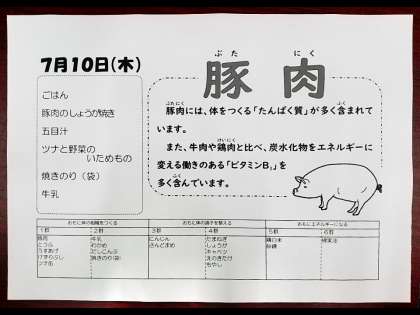 7月10日(木)
ごはん
豚肉のしょうが焼き
五目汁
ツナと野菜の
いためもの
焼きのり（袋）
牛乳
ぶた にく
豚 肉
ぶたにく ふく
豚肉には、体をつくる「たんぱく質」が多く含まれて
います。
けいにく
また、牛肉や鶏肉と比べ、炭水化物をエネルギーに
変える働きのある「ビタミンB₁」を
ふく
多く含んでいます。
おもに体の組織をつくる おもに体の調子を整える おもにエネルギーになる
1群 2群 3群 4群 5群 6群
豚肉 牛乳 にんじん たまねぎ
とうふ わかめ さんとまめ しょうが
キャベツ
けずりぶし 焼きのり(袋) えのきたけ
ツナ缶 もやし